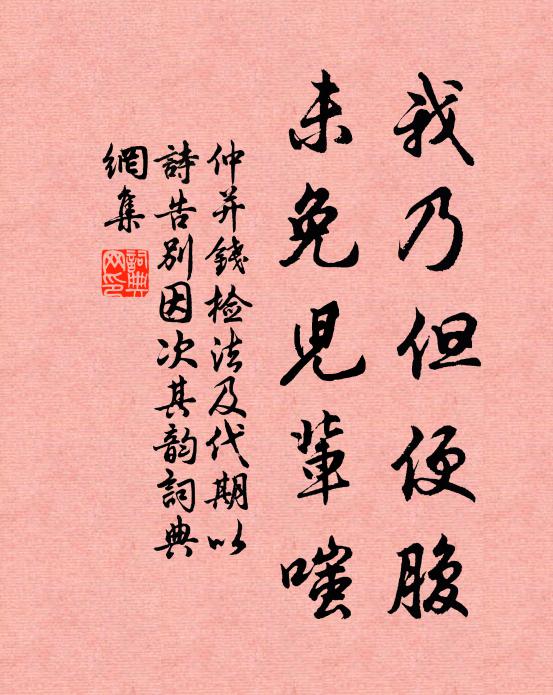 我乃但便腹
未免兒輩嗤
仲并錢检法及代期以
詩告別因次其韵詞典
網集
詞典網印